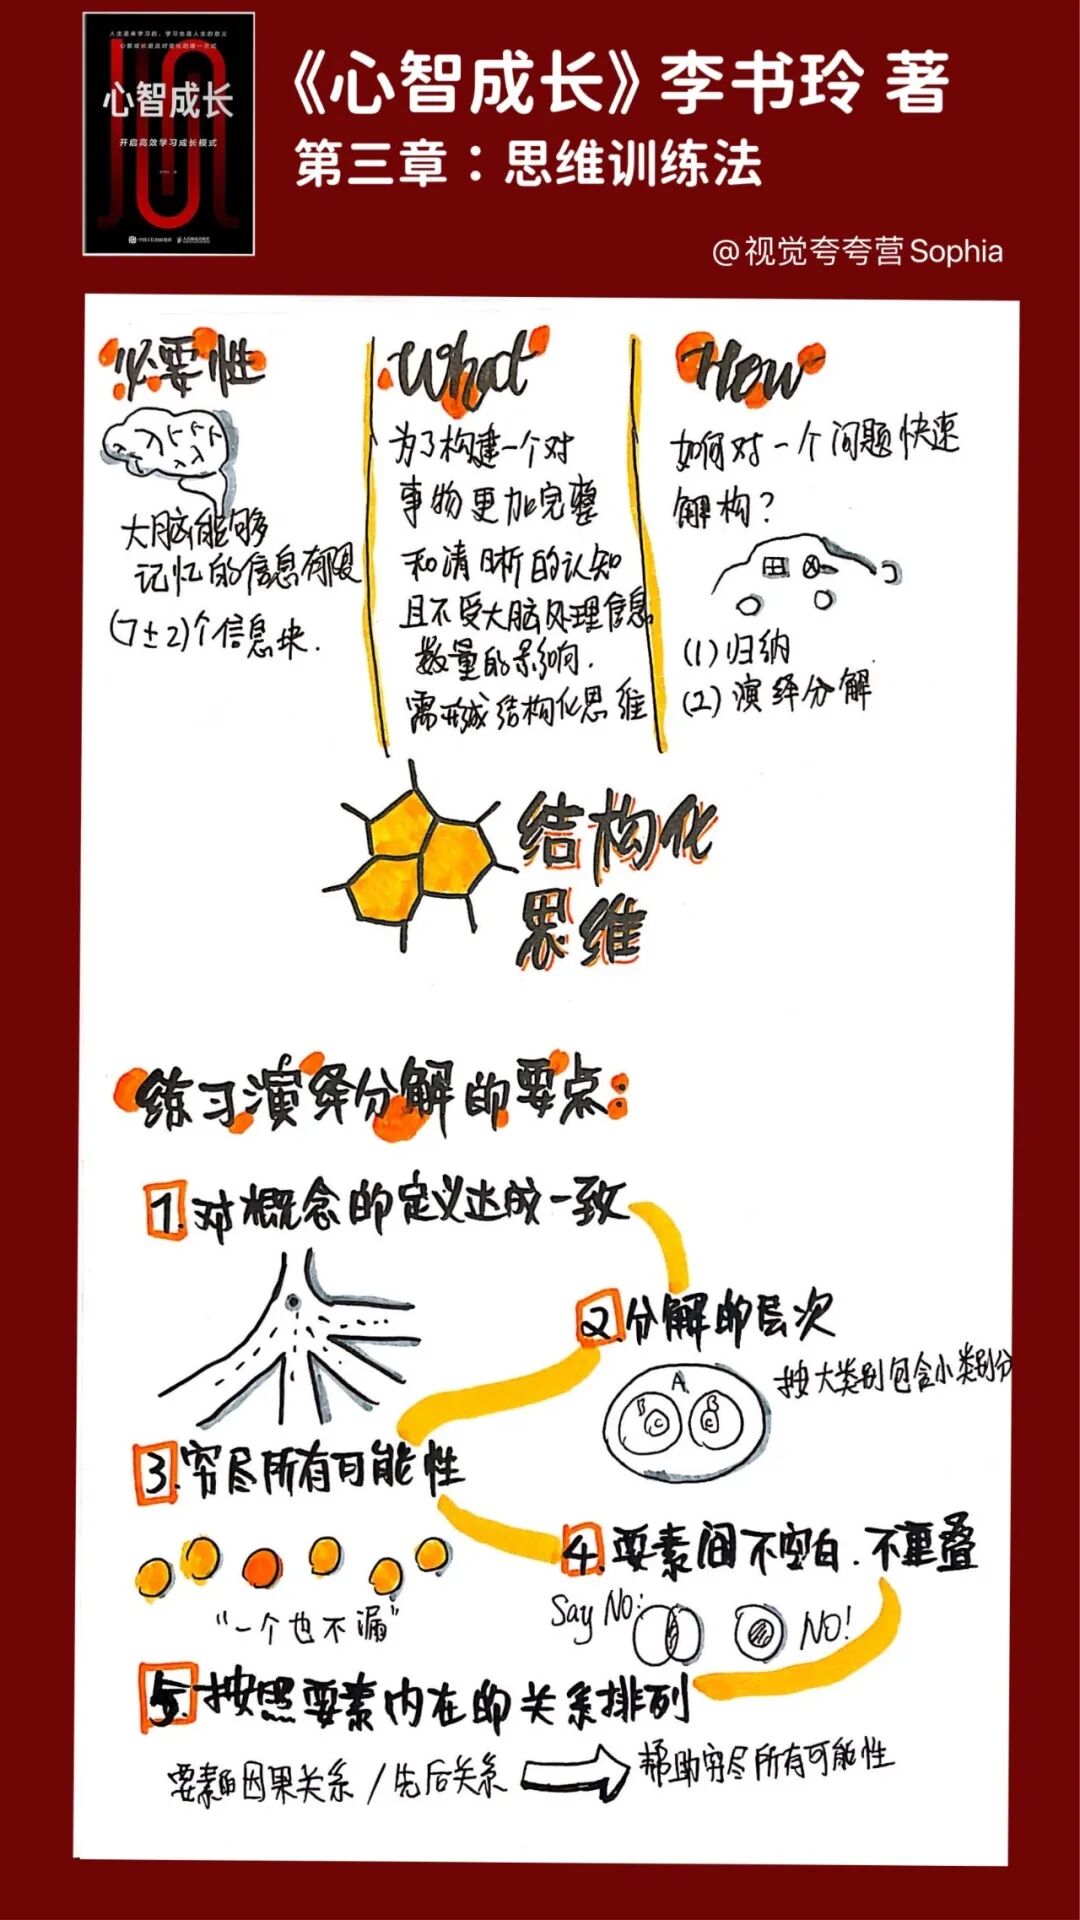 人生是来学习的，学习会是人生的意义
心智成长
开启高效学习成长模式
《心智成长》李书玲 著
第三章：思维训练法
@视觉夸夸营Sophia
必要性
大脑能够
记忆的信息有限
(7±2)个信息块.
What
为了构建一个对
事物更加完整
和清晰的认知
且不受大脑处理信息
数量的影响.
需形成结构化思维
How
如何对一个问题快速
解构?
(1)归纳
(2)演绎分解
结构化
思维
练习演绎分解的要点:
1.对概念的定义达成一致
2.分解的层次
按大类别包含小类别分
A
B
C
B
C
3.穷尽所有可能性
"一个也不漏"
4.要素间不空白.不重叠
Say NO:
NO!
5.按照要素内在的关系排列
要素的因果关系/先后关系
帮助穷尽所有可能性